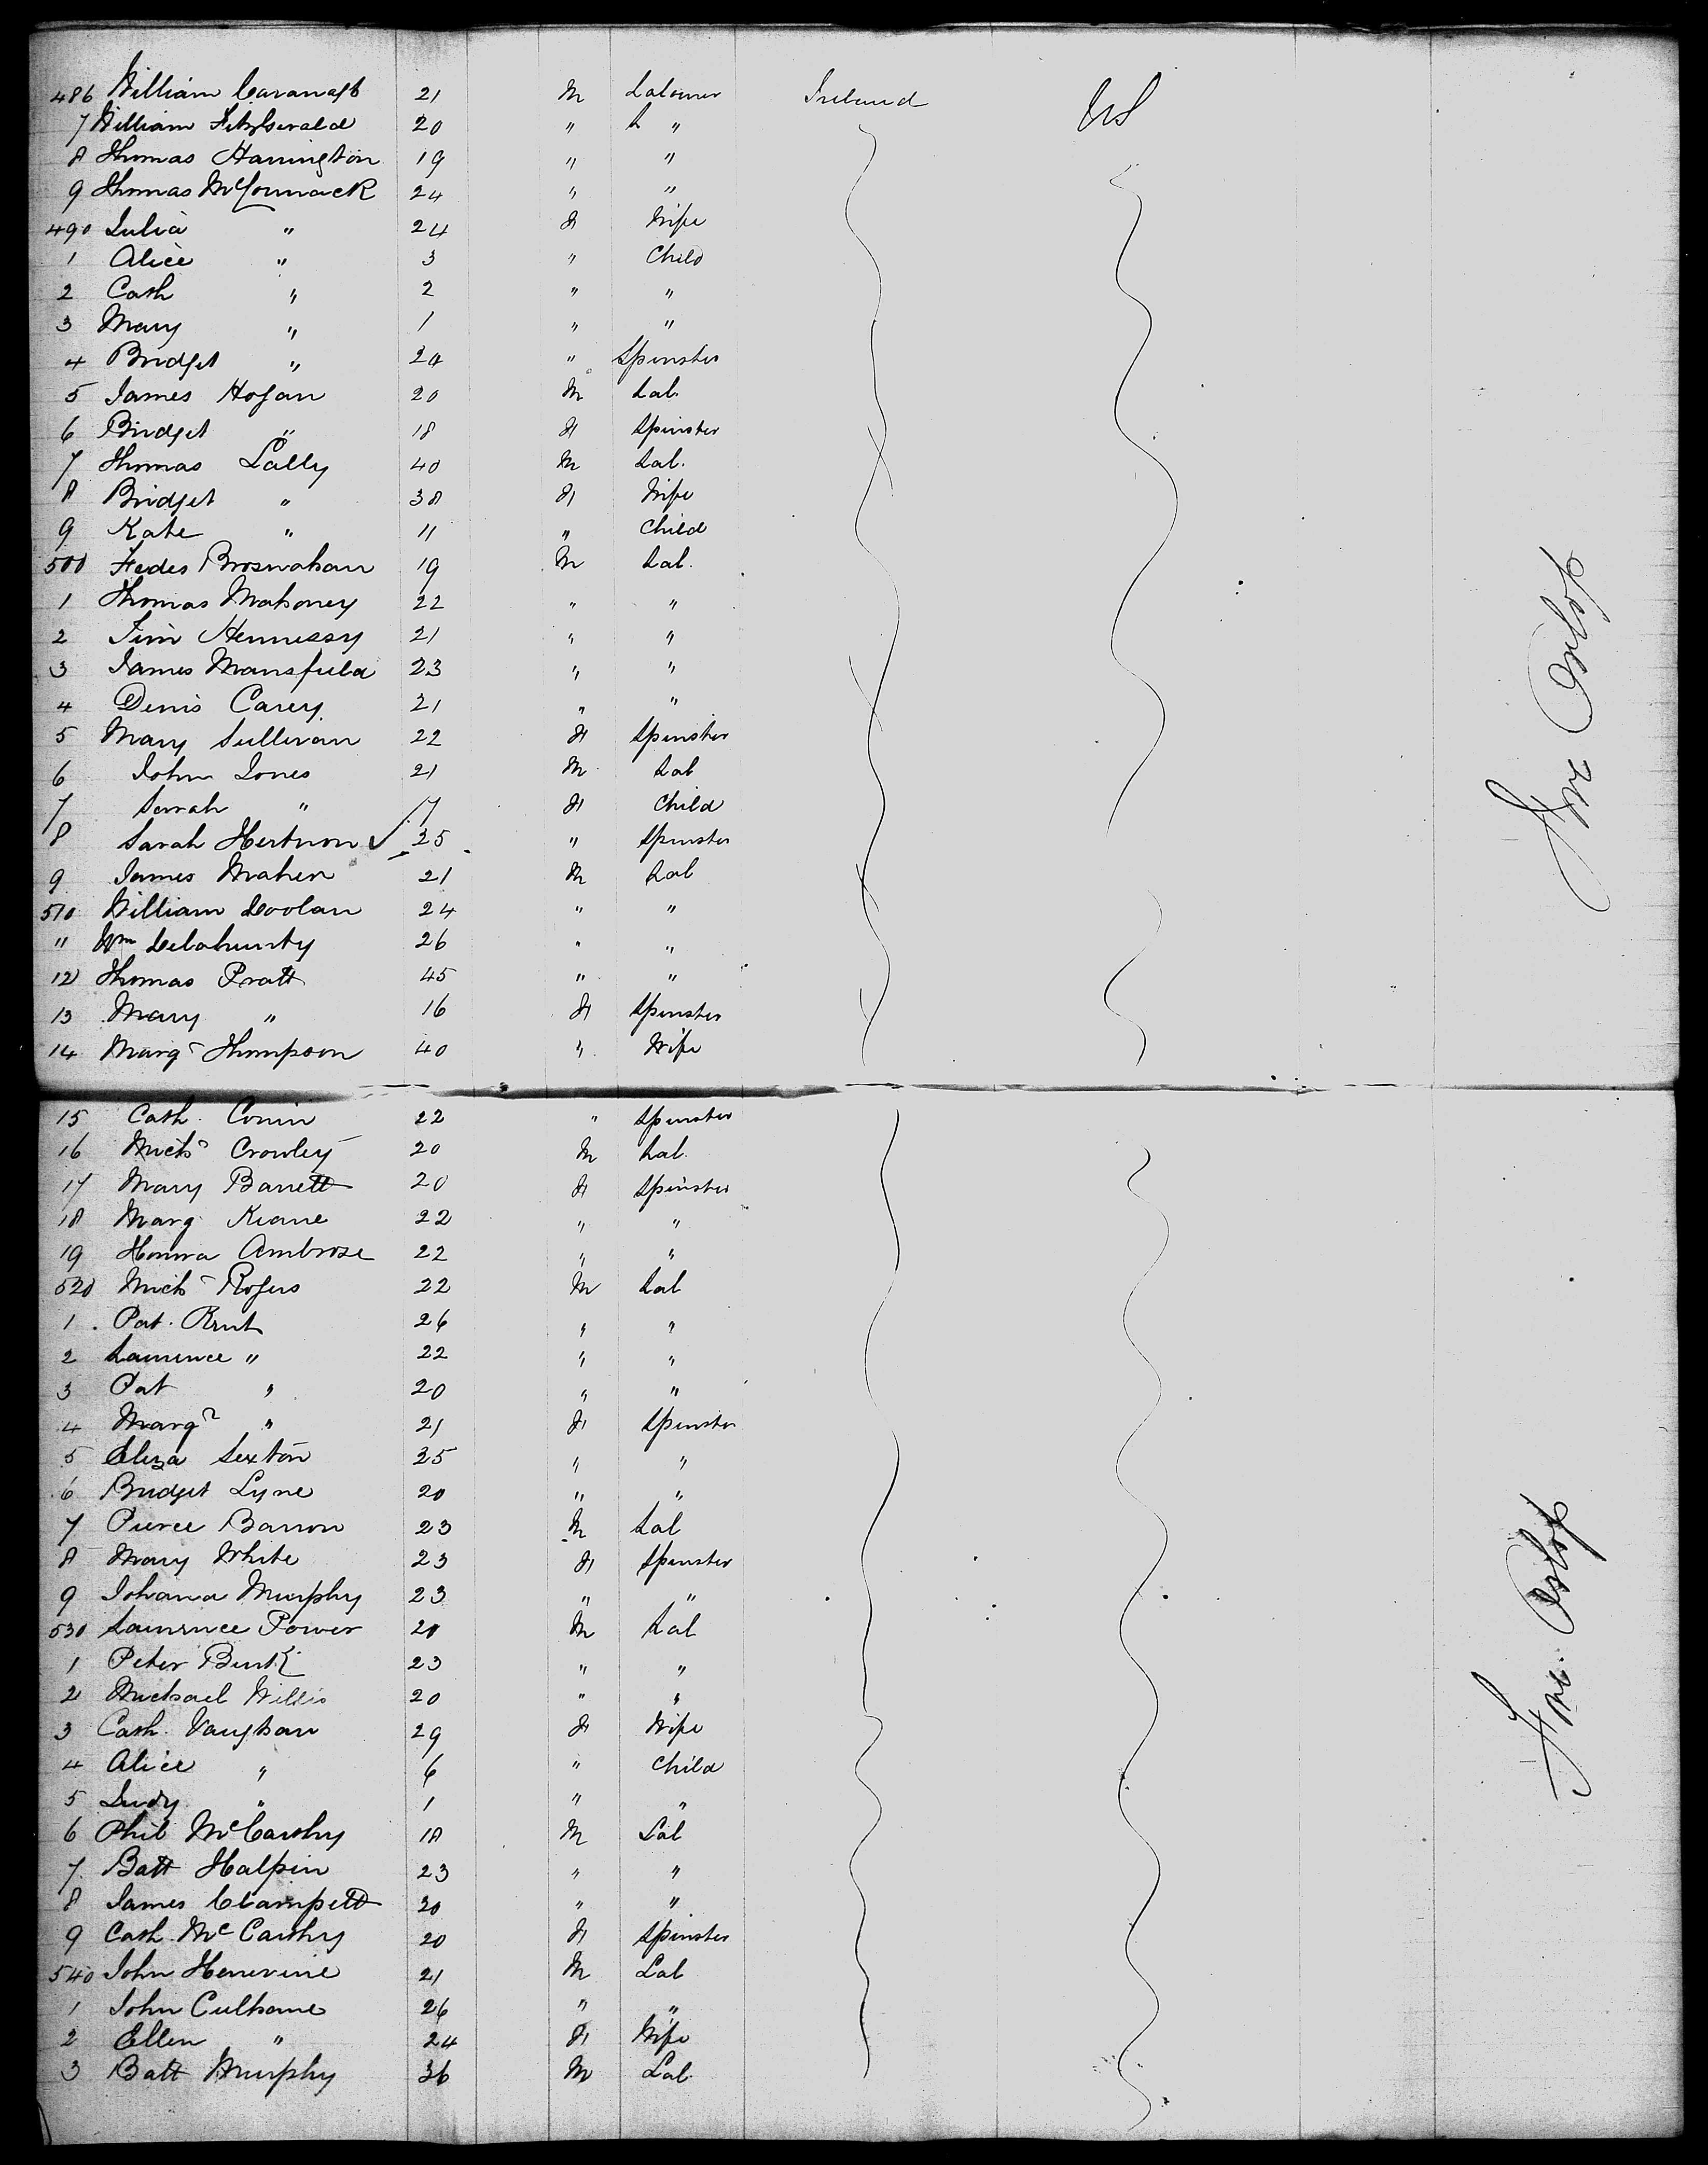 486 William Cavanagh 21 M Labourer Ireland US
7 William Fitzgerald 20 " L "
8 Thomas Harrington 19 " "
9 Thomas McCormack 24 " "
490 Julia " 24 F Wife
1 Alice " 3 " Child
2 Cath " 2 " "
3 Mary " 1 " "
4 Bridget " 20 " Spinster
5 James Hogan 20 M Lab.
6 Bridget " 18 F Spinster
7 Thomas Lally 40 M Lab.
8 Bridget " 38 F Wife
9 Kate " 11 " Child
500 Brosnahan 19 M Lab.
1 Thomas Mahoney 22 " "
2 Tim Hennessy 21 " "
3 James Mansfield 23 " "
4 Denis Carey 21 " "
5 Mary Sullivan 22 F Spinster
6 John Jones 21 M Lab
7 Sarah " 17 F Child
8 Sarah 25 " Spinster
9 James Maher 21 M Lab
510 William Doolan 24 " "
11 Wm Delahunty 26 " "
12 Thomas Pratt 45 " "
13 Mary " 16 F Spinster
14 Margt Thompson 40 " Wife
15 Cath. 22 " Spinster
16 Michl Crowley 20 M Lab.
17 Mary Barrett 20 F Spinster
18 Marg Keane 22 " "
19 Honora Ambrose 22 " "
520 Michl Rogers 22 M Lab
1 Pat. 26 " "
2 Laurence " 22 " "
3 Pat " 20 " "
4 Margt " 21 F Spinster
5 Eliza Sexton 25 " "
6 Bridget Lyne 20 " "
7 Pierce Barron 23 M Lab
8 Mary White 23 F Spinster
9 Johana Murphy 23 " "
530 Lawrence Power 20 M Lab
1 Peter Burk 23 " "
2 Michael Willis 20 " "
3 Cath. Vaughan 29 F Wife
4 Alice " 6 " Child
5 Judy " 1 " "
6 Phil McCarthy 18 M Lab
7 Batt Halpin 23 " "
8 James Clampett 20 " "
9 Cath. McCarthy 20 F Spinster
540 John 21 M Lab
1 John Culhane 26 " "
2 Ellen " 24 F Wife
3 Batt Murphy 36 M Lab.